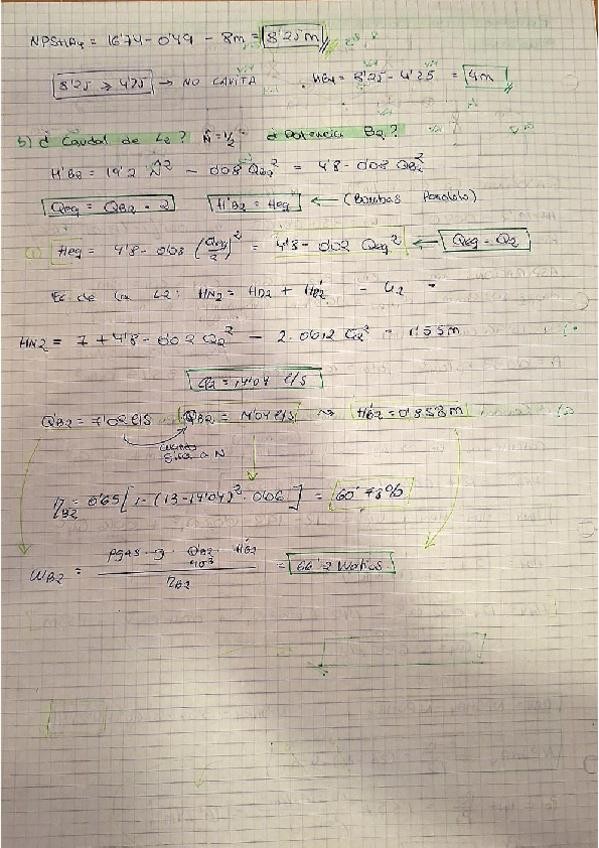 NPSHA4 = 16'74 - 0'49 - 8m = 8'25m
8'25 > 4'25 → NO CAVITA HB4 = 8'25 - 4'25 = 4m
b) ¿ Caudal de L2 ? N̂ = 1/2 ¿ Potencia B2 ?
H'B2 = 19'2 N̂² - 0'08 QB2² = 4'8 - 0'08 QB2²
Qeq = QB2 · 2 H'B2 = Heq ← (Bombas Paralelo)
Heq = 4'8 - 0'08 (Qeq/2)² = 4'8 - 0'02 Qeq² ← Qeq = Q2
Ec de la L2: HN2 = HD2 + HB2 - U2 =
HN2 = 7 + 4'8 - 0'02 Q2² - 2 · 0'012 Q2² = 1'55m
Q2 = 14'04 l/s
Q'B2 = 7'02 l/s QB2 = 14'04 l/s → H'B2 = 0'858 m
ηB2 = 0'65 [1 - (13 - 14'04)² · 0'06] = 60'78%
WB2 = ρgas · g · Q'B2/10³ · H'B2 / ηB2 = 66'2 Watios